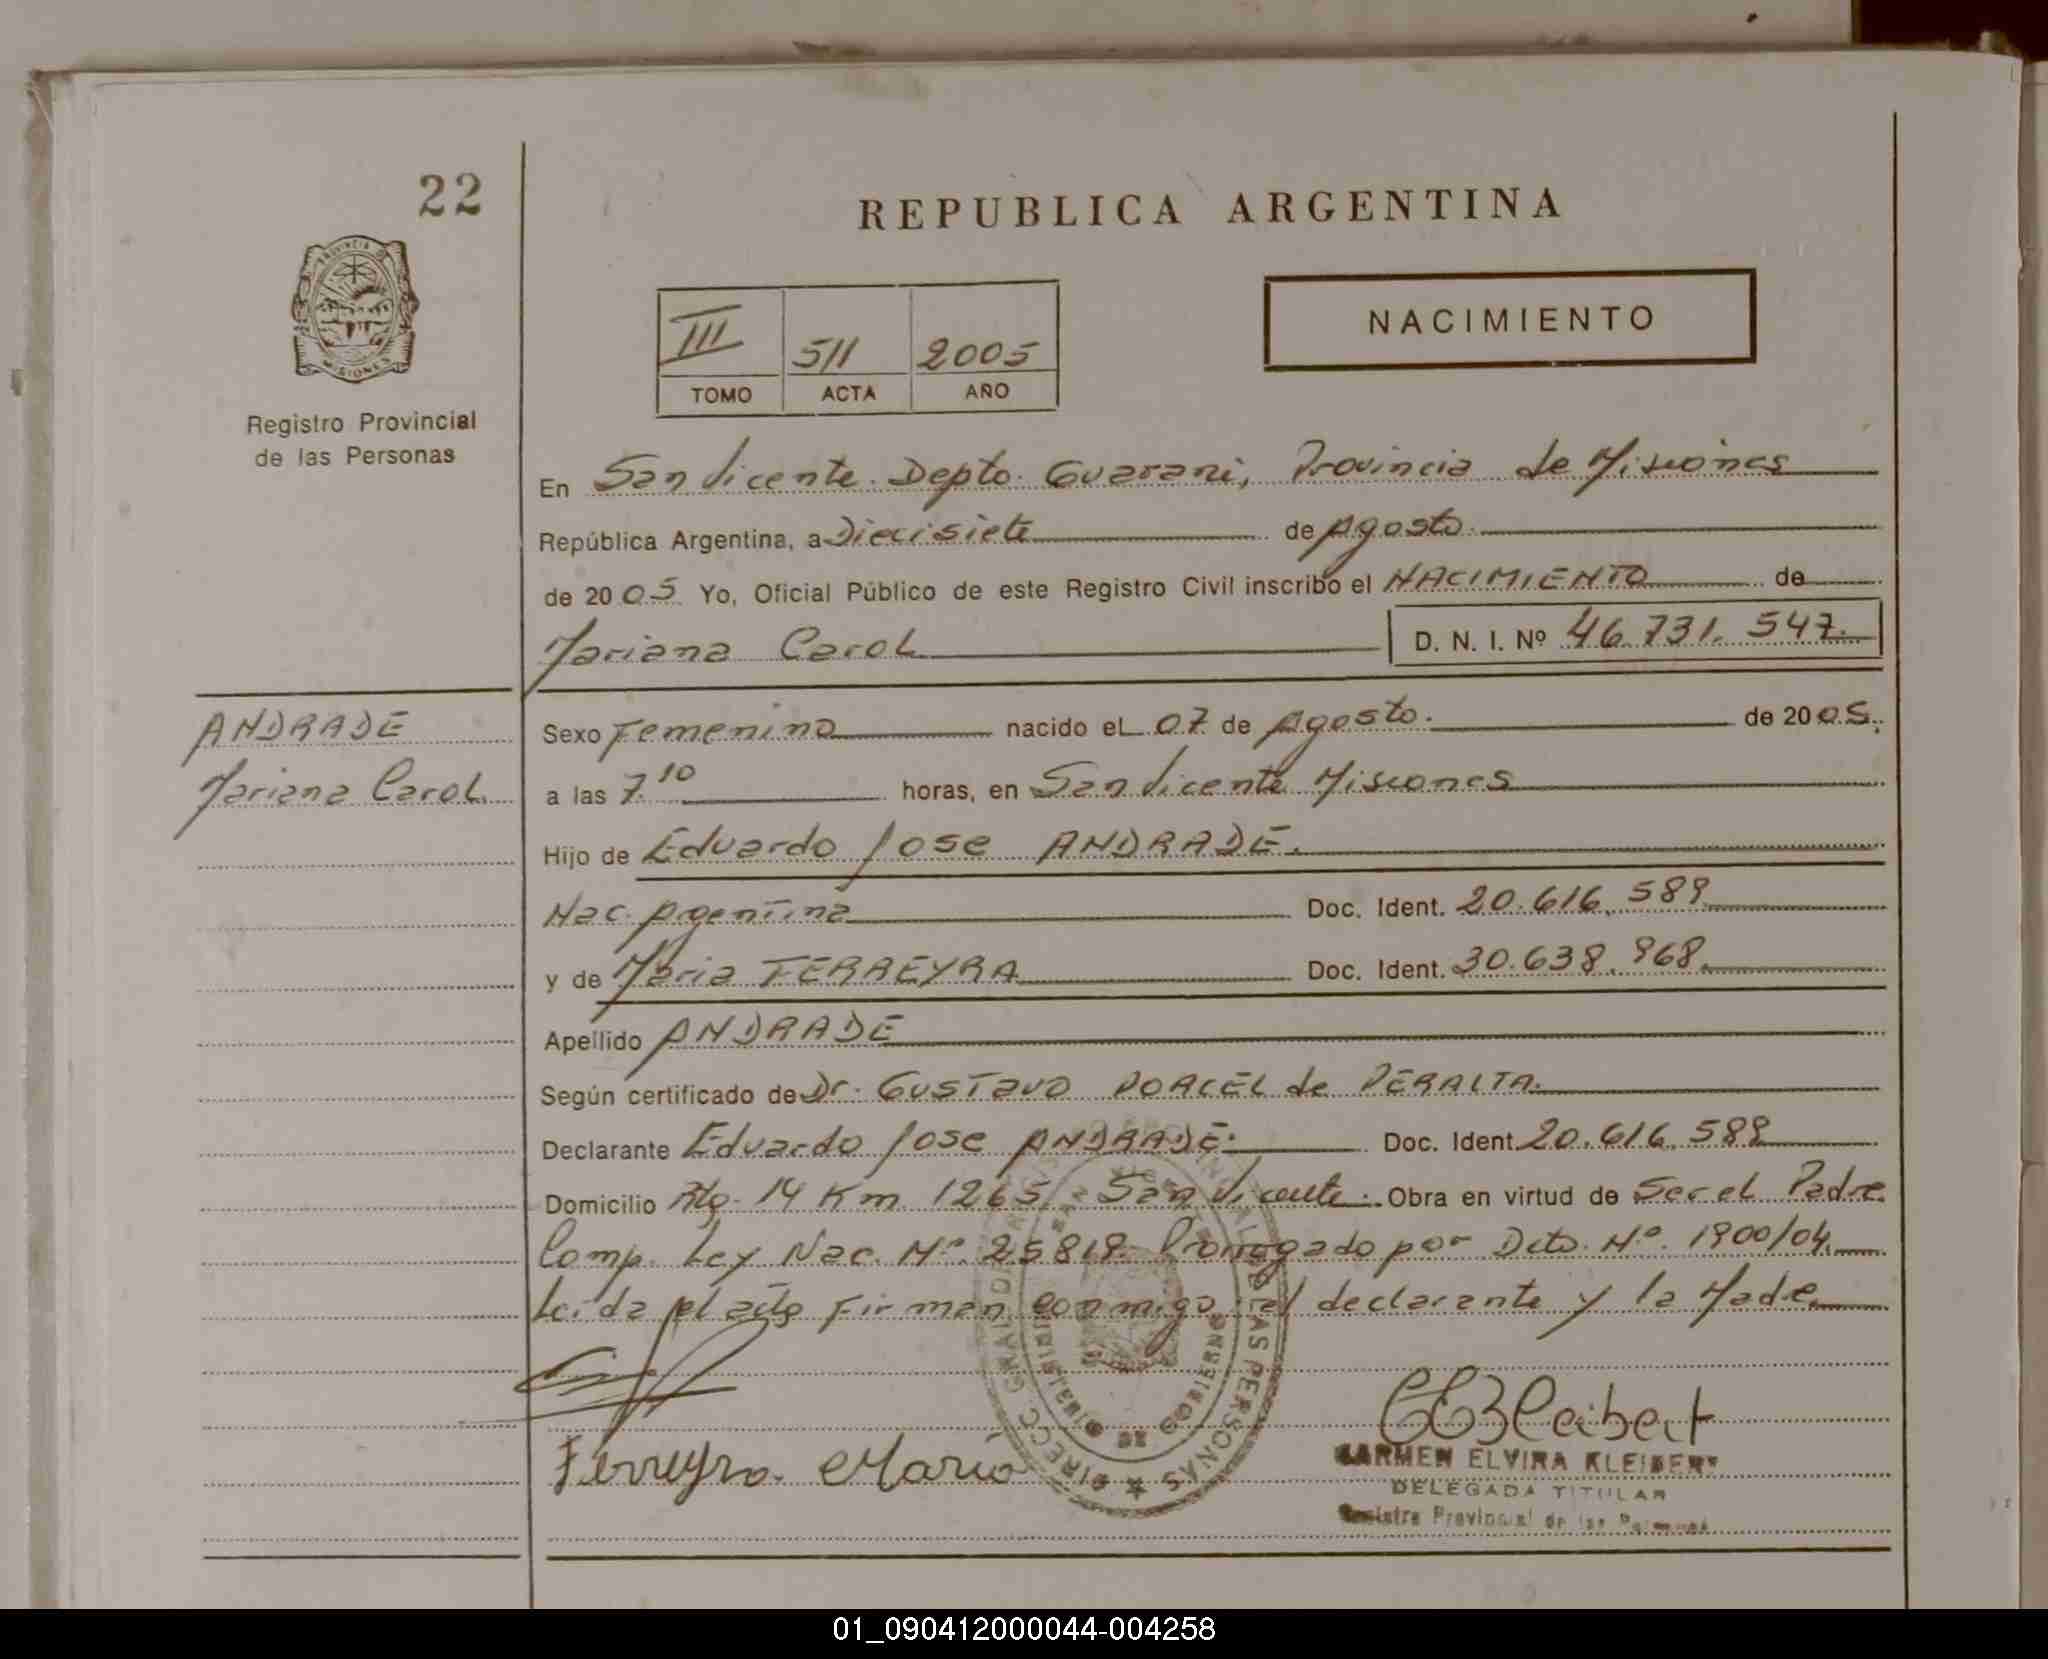 22
REPUBLICA ARGENTINA
PROVINCIA DE
MISIONES
Registro Provincial
de las Personas
III 511 2005
TOMO ACTA AÑO
NACIMIENTO
En San Vicente. Depto. Guarani, Provincia de Misiones
República Argentina, a Diecisiete de Agosto.
de 2005 Yo, Oficial Público de este Registro Civil inscribo el NACIMIENTO de
Mariana Carol D. N. I. Nº 46.731.547.
ANDRADE
Mariana Carol.
Sexo Femenino nacido el 07 de Agosto. de 2005.
a las 7.10 horas, en San Vicente Misiones
Hijo de Eduardo Jose ANDRADE.
Nac. Argentina Doc. Ident. 20.616.589
y de Maria FERREYRA Doc. Ident. 30.638.968.
Apellido ANDRADE
Según certificado de Dr. GUSTAVO PORCEL de PERALTA.
Declarante Eduardo Jose ANDRADE. Doc. Ident. 20.616.589
Domicilio Rta. 14 Km 1265, San Vicente. Obra en virtud de Ser el Padre
Comp. Ley Nac. Nº 25819. Prorrogado por Dcto. Nº. 1900/04.
Leida el acta Firman conmigo el declarante y la Madre
Ferreyra Maria
CEKleibert
CARMEN ELVIRA KLEIBERT
DELEGADA TITULAR
Registro Provincial de las Personas
DIRECC GRAL DEL REGISTRO PROVINCIAL DE LAS PERSONAS
SAN VICENTE
MINISTERIO DE GOBIERNO
01_090412000044-004258